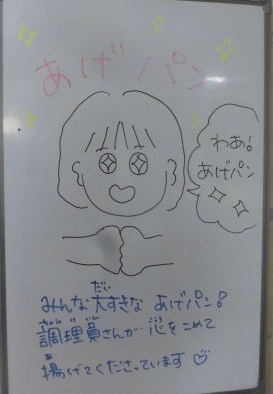 あげパン
わあ!
あげパン
みんな大すきな あげパン?
調理員さんが 心をこめて
揚げてくださっています♡